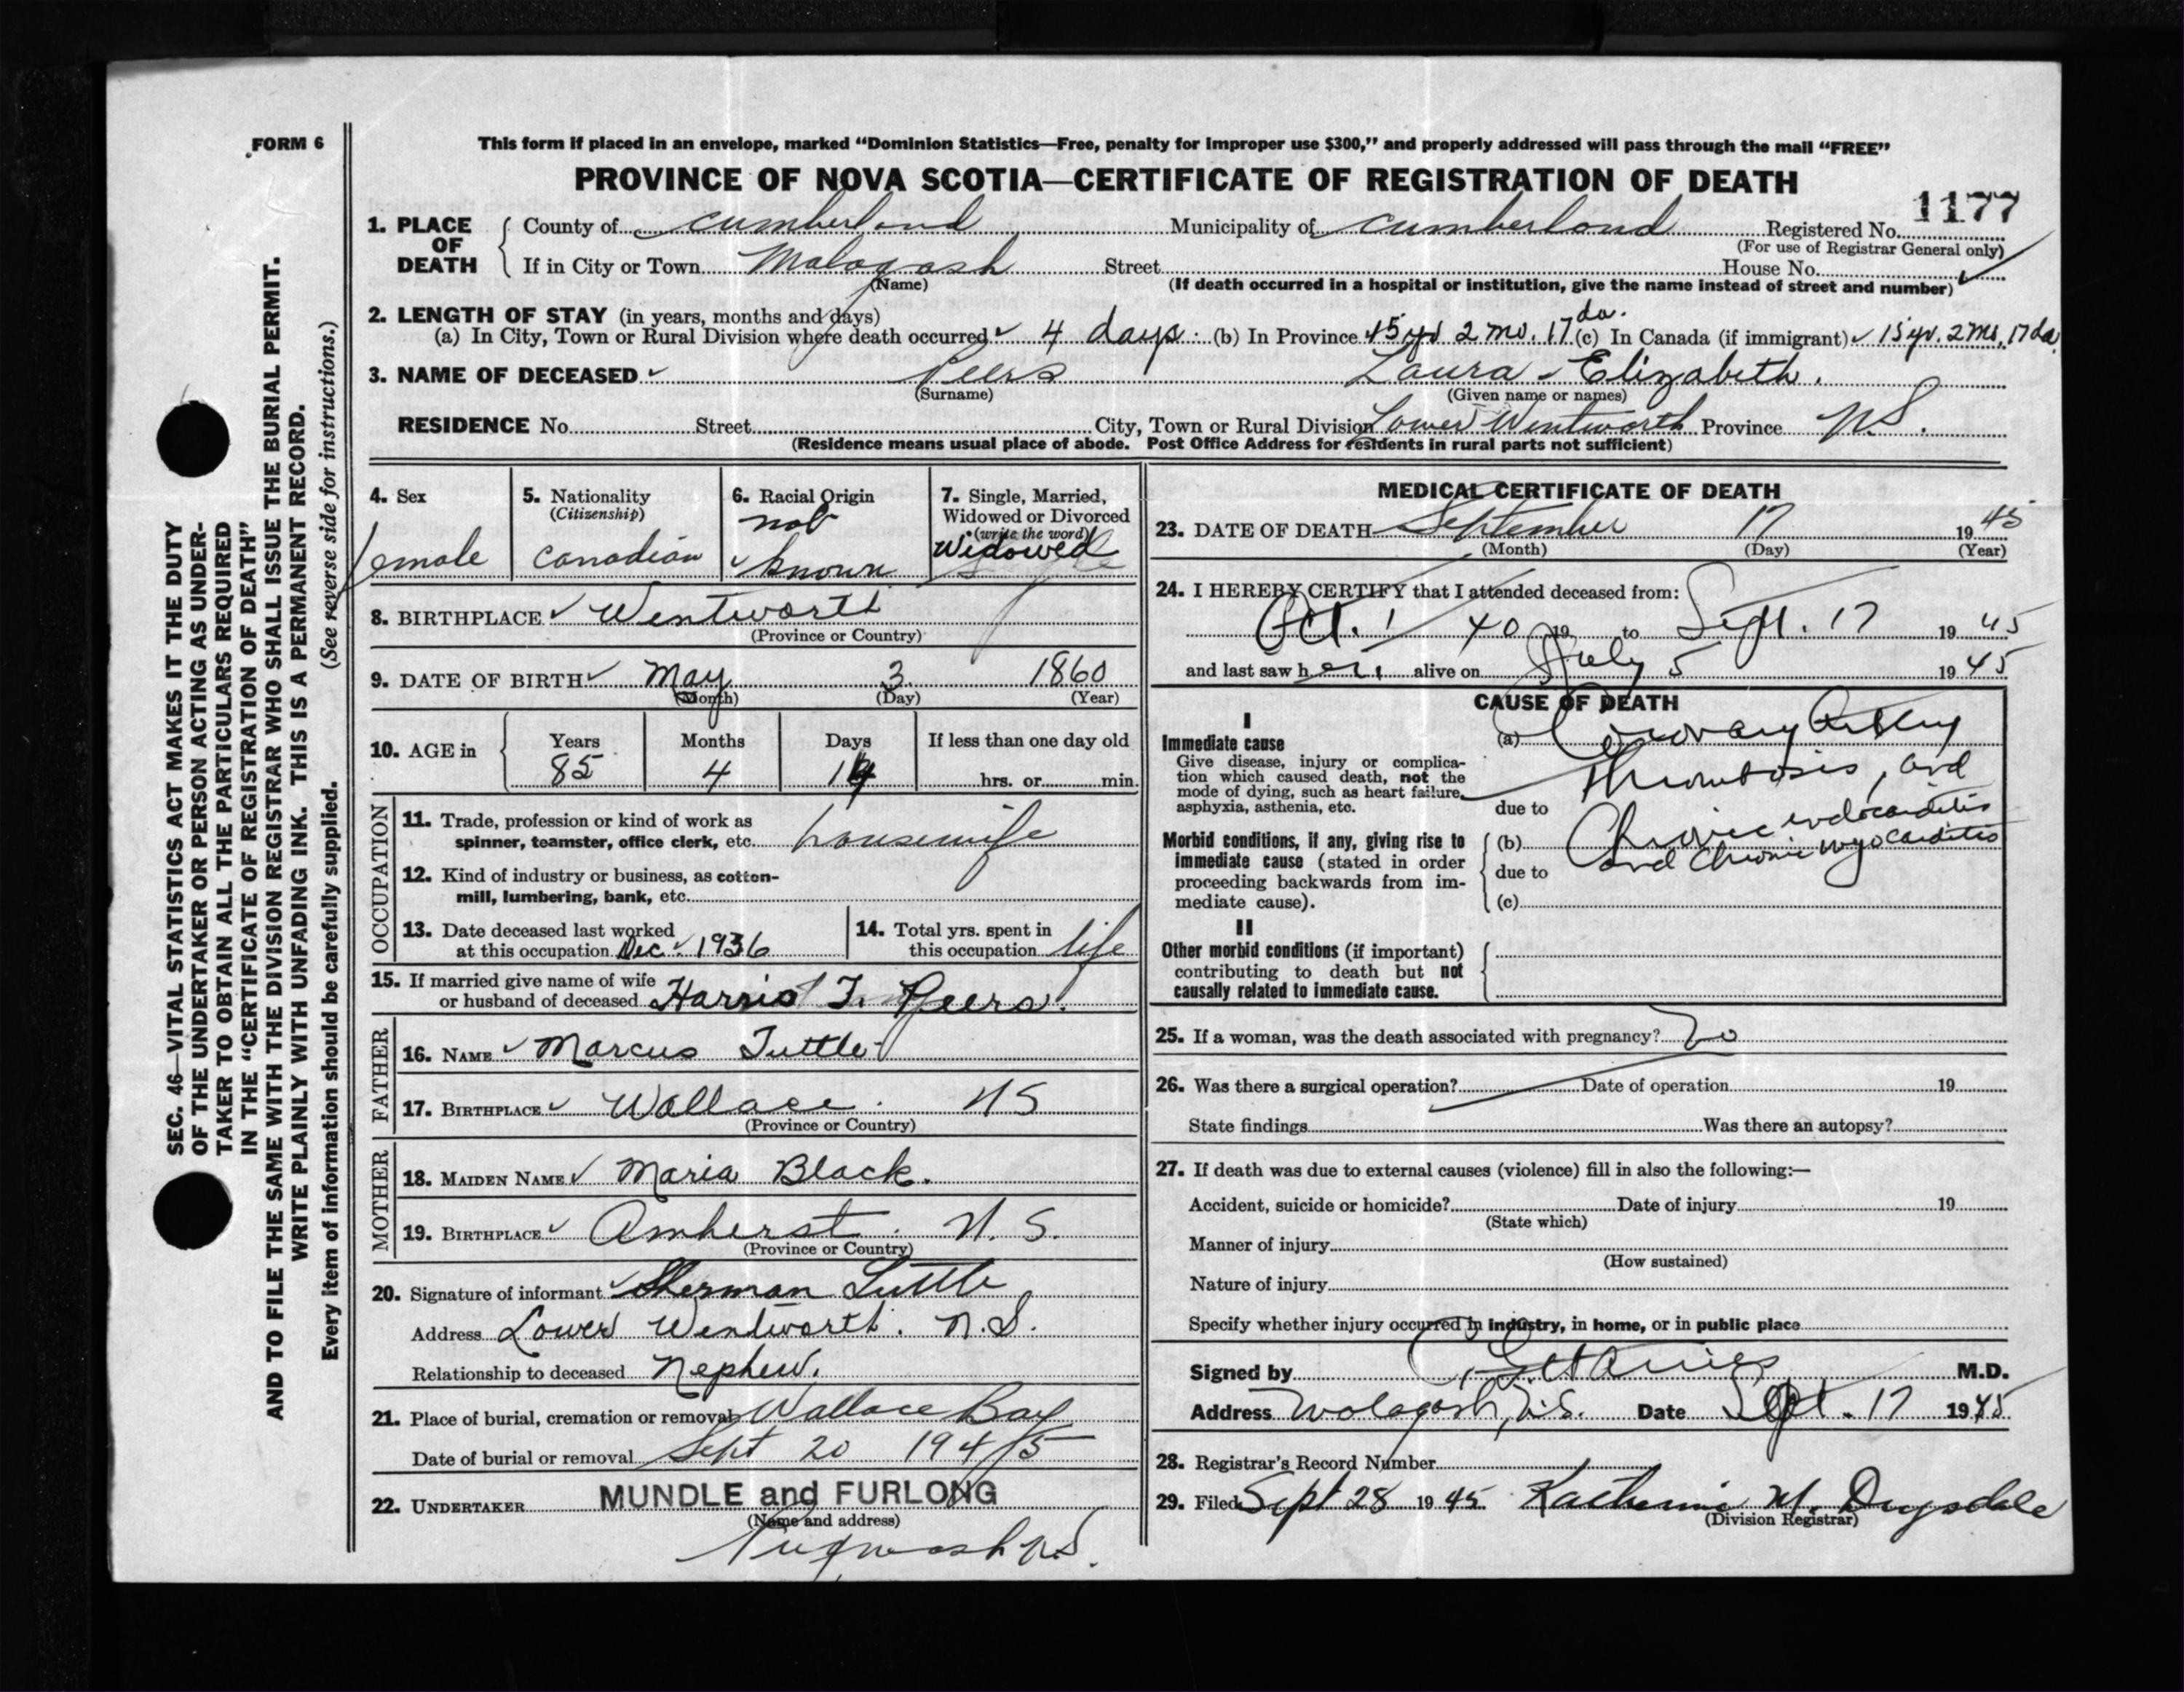 FORM 6
This form if placed in an envelope, marked "Dominion Statistics—Free, penalty for improper use $300," and properly addressed will pass through the mail "FREE"
PROVINCE OF NOVA SCOTIA—CERTIFICATE OF REGISTRATION OF DEATH
1177
1. PLACE OF DEATH County of Cumberland Municipality of Cumberland Registered No.
(For use of Registrar General only)
If in City or Town Malagash Street House No.
(Name) (If death occurred in a hospital or institution, give the name instead of street and number)
2. LENGTH OF STAY (in years, months and days)
(a) In City, Town or Rural Division where death occurred 4 days. (b) In Province 15 yr 2 mo. 17 da. (c) In Canada (if immigrant) 15 yr. 2 mo. 17 da
3. NAME OF DECEASED Peers Laura - Elizabeth.
(Surname) (Given name or names)
RESIDENCE No. Street City, Town or Rural Division Lower Wentworth Province N.S.
(Residence means usual place of abode. Post Office Address for residents in rural parts not sufficient)
SEC. 46—VITAL STATISTICS ACT MAKES IT THE DUTY
OF THE UNDERTAKER OR PERSON ACTING AS UNDER-
TAKER TO OBTAIN ALL THE PARTICULARS REQUIRED
IN THE "CERTIFICATE OF REGISTRATION OF DEATH"
AND TO FILE THE SAME WITH THE DIVISION REGISTRAR WHO SHALL ISSUE THE BURIAL PERMIT.
WRITE PLAINLY WITH UNFADING INK. THIS IS A PERMANENT RECORD.
Every item of information should be carefully supplied. (See reverse side for instructions.)
4. Sex
female
5. Nationality
(Citizenship)
Canadian
6. Racial Origin
not
known
7. Single, Married,
Widowed or Divorced
(write the word)
Widowed
8. BIRTHPLACE Wentworth
(Province or Country)
9. DATE OF BIRTH May 3 1860
(Month) (Day) (Year)
10. AGE in Years Months Days If less than one day old
85 4 14 hrs. or min.
OCCUPATION
11. Trade, profession or kind of work as
spinner, teamster, office clerk, etc. housewife
12. Kind of industry or business, as cotton-
mill, lumbering, bank, etc.
13. Date deceased last worked
at this occupation Dec. 1936
14. Total yrs. spent in
this occupation life
15. If married give name of wife
or husband of deceased Harris T. Peers.
FATHER
16. NAME Marcus Tuttle
17. BIRTHPLACE Wallace. NS
(Province or Country)
MOTHER
18. MAIDEN NAME Maria Black.
19. BIRTHPLACE Amherst. N. S.
(Province or Country)
20. Signature of informant Sherman Tuttle
Address Lower Wentworth. N.S.
Relationship to deceased Nephew.
21. Place of burial, cremation or removal Wallace Bay
Date of burial or removal Sept 20 1945
22. UNDERTAKER MUNDLE and FURLONG
(Name and address)
Pugwash N.S.
MEDICAL CERTIFICATE OF DEATH
23. DATE OF DEATH September 17 1945
(Month) (Day) (Year)
24. I HEREBY CERTIFY that I attended deceased from:
Oct. 1 40 19 to Sept. 17 1945
and last saw her alive on July 5 1945
CAUSE OF DEATH
I
Immediate cause
Give disease, injury or complica-
tion which caused death, not the
mode of dying, such as heart failure,
asphyxia, asthenia, etc.
(a) Coronary Artery
Thrombosis, and
due to
Morbid conditions, if any, giving rise to
immediate cause (stated in order
proceeding backwards from im-
mediate cause).
(b) Chronic endocarditis
and Chronic myocarditis
due to
(c)
II
Other morbid conditions (if important)
contributing to death but not
causally related to immediate cause.
25. If a woman, was the death associated with pregnancy? No
26. Was there a surgical operation? Date of operation 19
State findings Was there an autopsy?
27. If death was due to external causes (violence) fill in also the following:—
Accident, suicide or homicide? Date of injury 19
(State which)
Manner of injury
(How sustained)
Nature of injury
Specify whether injury occurred in industry, in home, or in public place
Signed by M.D.
Address Malagash, N.S. Date Sept. 17 1945
28. Registrar's Record Number
29. Filed Sept 28 1945 Katherine M. Drysdale
(Division Registrar)